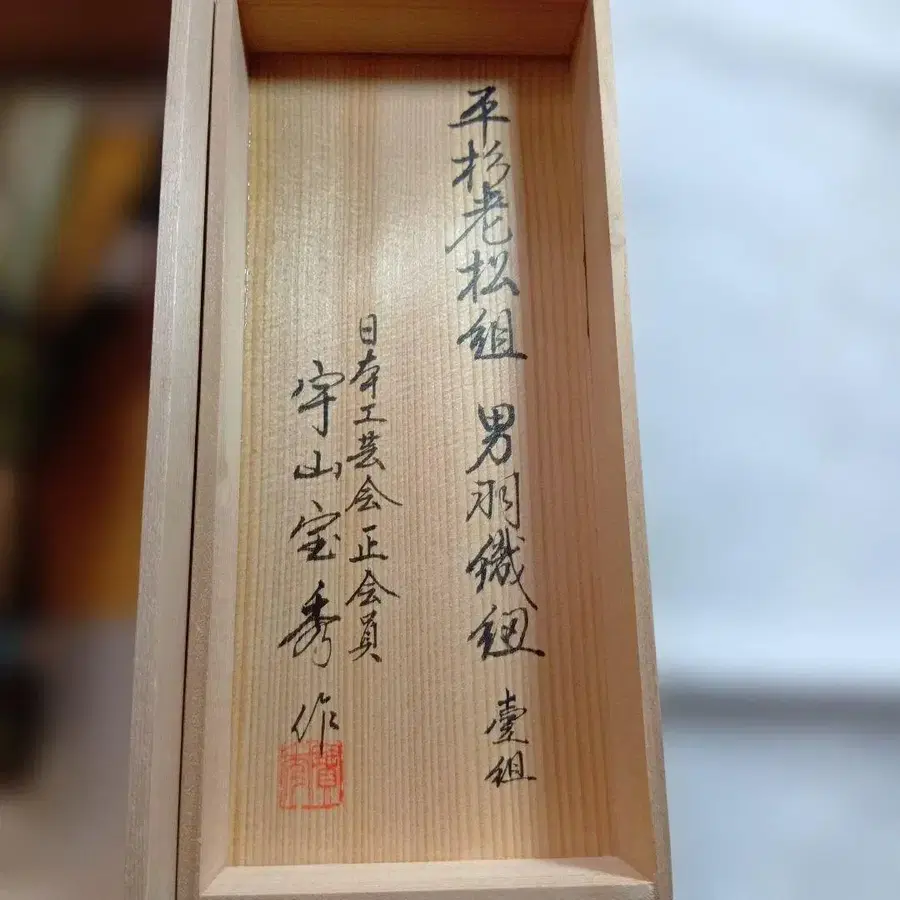 平杉老松組 男羽織紐 壹組
日本工芸会正会員
宇山宝秀 作
寶秀